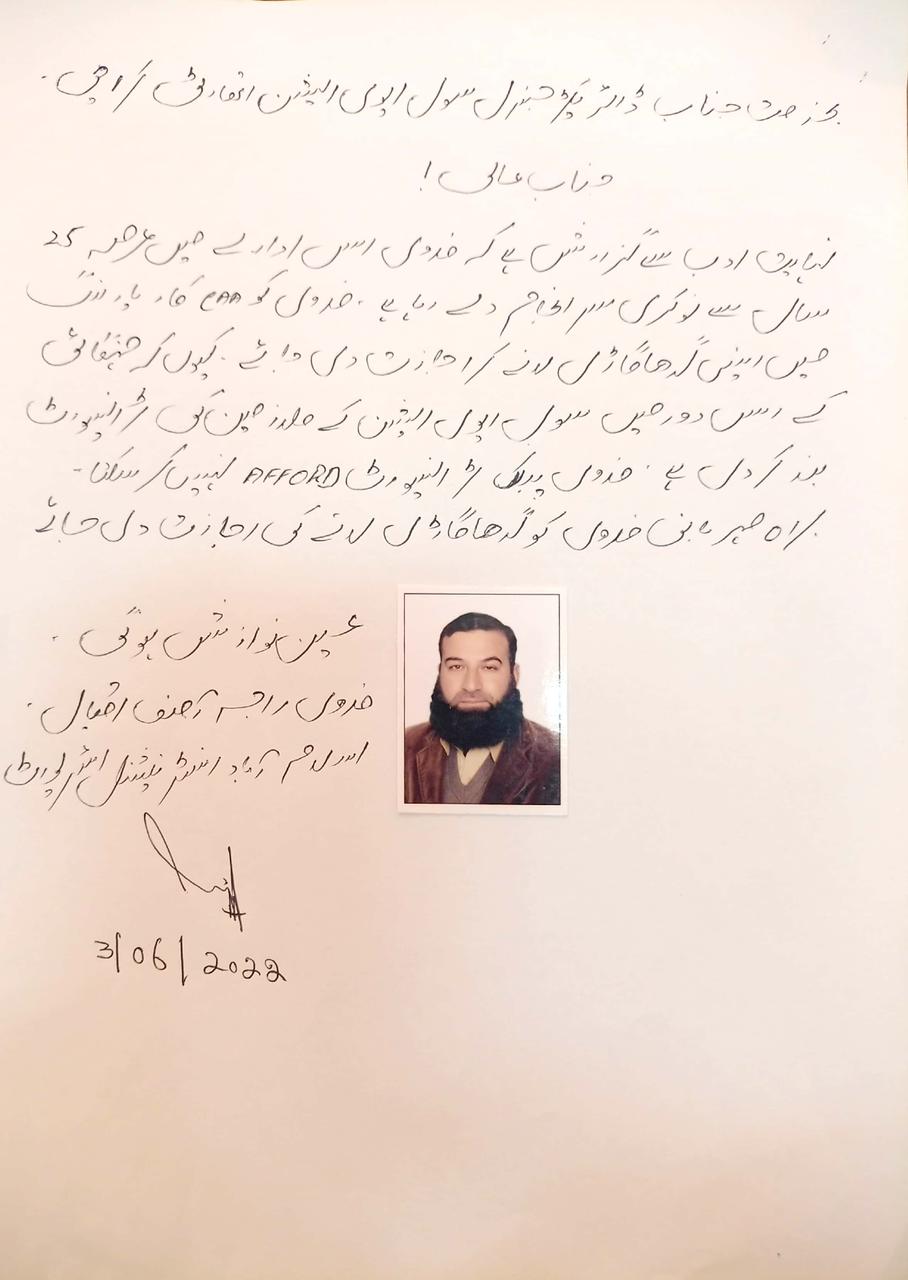 بخدمت جناب ڈائریکٹر جنرل سول ایوی ایشن اتھارٹی کراچی۔
جناب عالی!
نہایت ادب سے گزارش ہے کہ فدوی اس ادارے میں عرصہ 25
سال سے نوکری سر انجام دے رہا ہے۔ فدوی کو CAA کار پارکنگ
میں اپنی گدھا گاڑی لانے کی اجازت دی جائے۔ کیوں کہ مہنگائی
کے اس دور میں سول ایوی ایشن کے ملازمین کی ٹرانسپورٹ
بند کر دی ہے۔ فدوی پبلک ٹرانسپورٹ AFFORD نہیں کر سکتا۔
براہ مہربانی فدوی کو گدھا گاڑی لانے کی اجازت دی جائے
عین نوازش ہوگی۔
فدوی راجہ آصف اقبال۔
اسلام آباد انٹرنیشنل ائیرپورٹ
3/06/2022